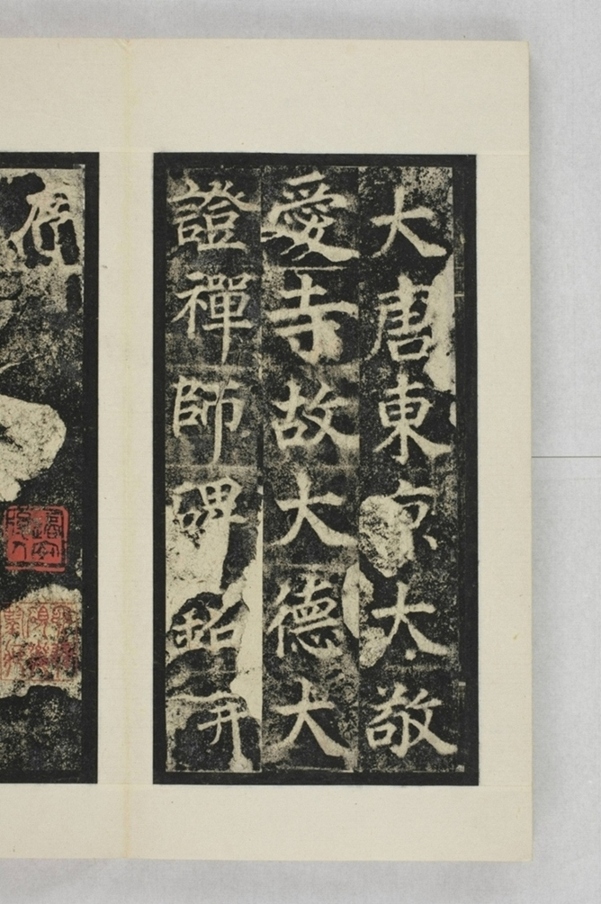 大唐東京大敬
愛寺故大德大
證禪師碑銘并
序